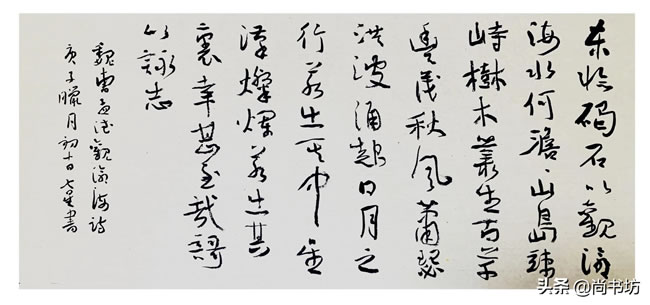 東臨碣石以觀滄
海水何澹〻山島竦
峙樹木叢生百草
豐茂秋風蕭瑟
洪波涌起日月之
行若出其中星
漢燦爛若出其
裏幸甚至哉謌
以詠志
魏曹孟德觀滄海詩
庚子臘月初十日 書
头条 @尚书坊